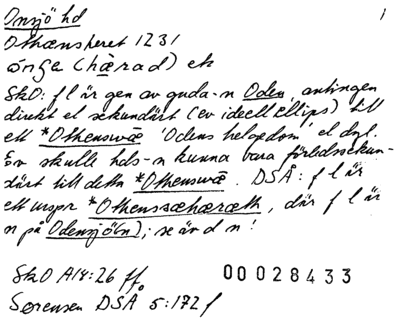 Onsjö hd 1
Othænsheret 1231
önga (härad) ek
SkO: f l är gen av guda-n Oden, antingen
direkt el sekundärt (ev ideell ellips) till
ett *Othenswæ 'Odens helgedom' el dyl.
Ev skulle hds-n kunna vara förledssekun-
därt till detta *Othenswæ. DSÅ: f l är
ett urspr *Othenssæhæræth, där f l är
n på Odensjö(n); se ärd n!
SkO A18:26 ff
00028433
Sørensen DSÅ 5:172 f